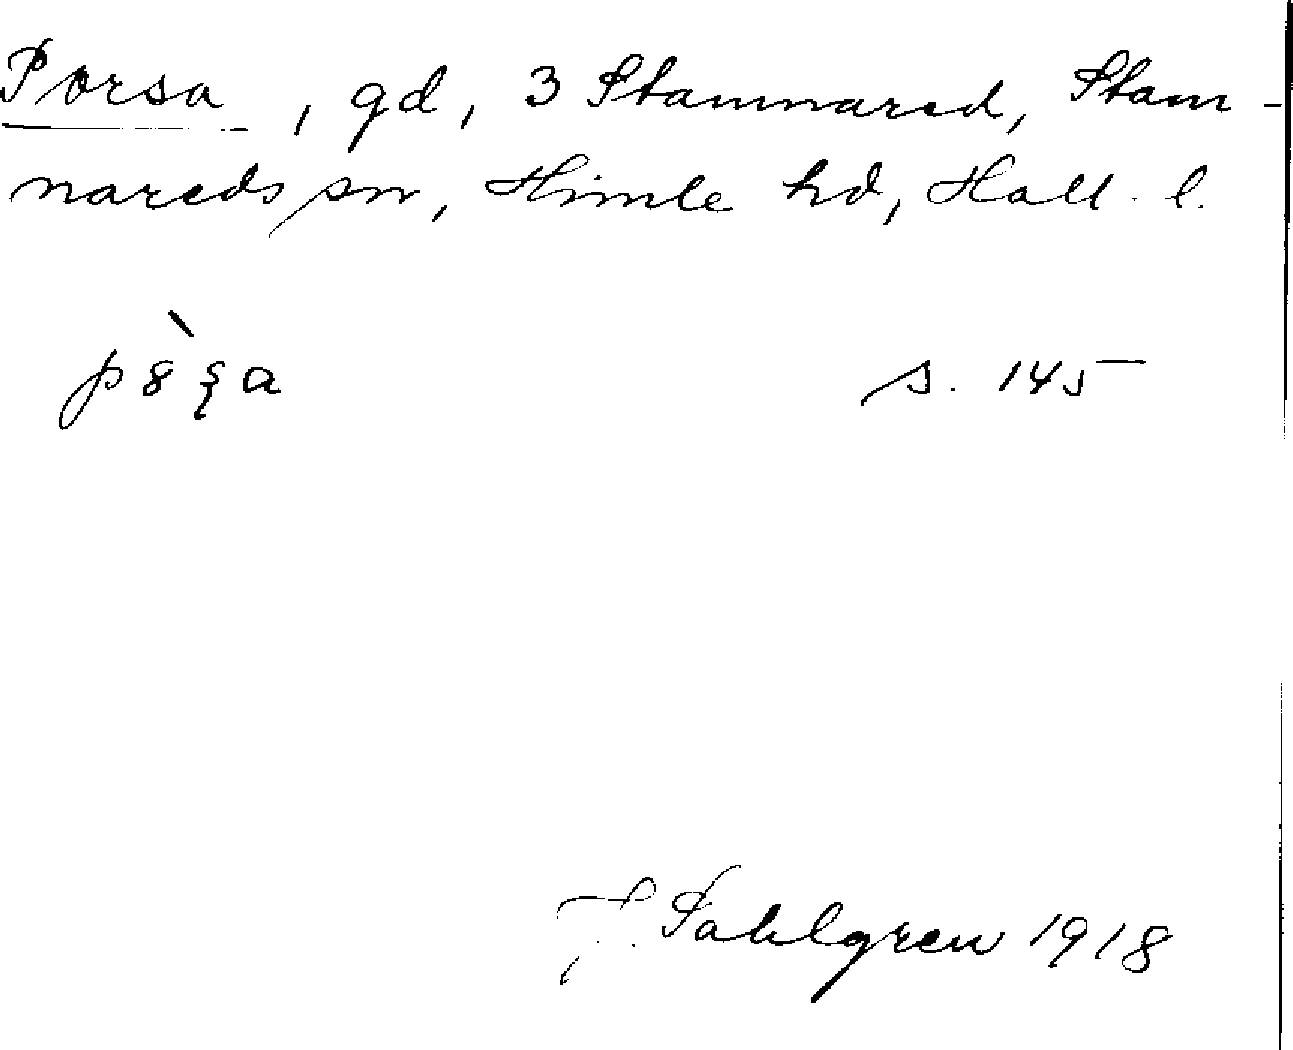 Porsa, gd, 3 Stamnared, Stam-
nareds sn, Himle hd, Hall. l.
p8̀ʂa s. 145
J. Sahlgren 1918